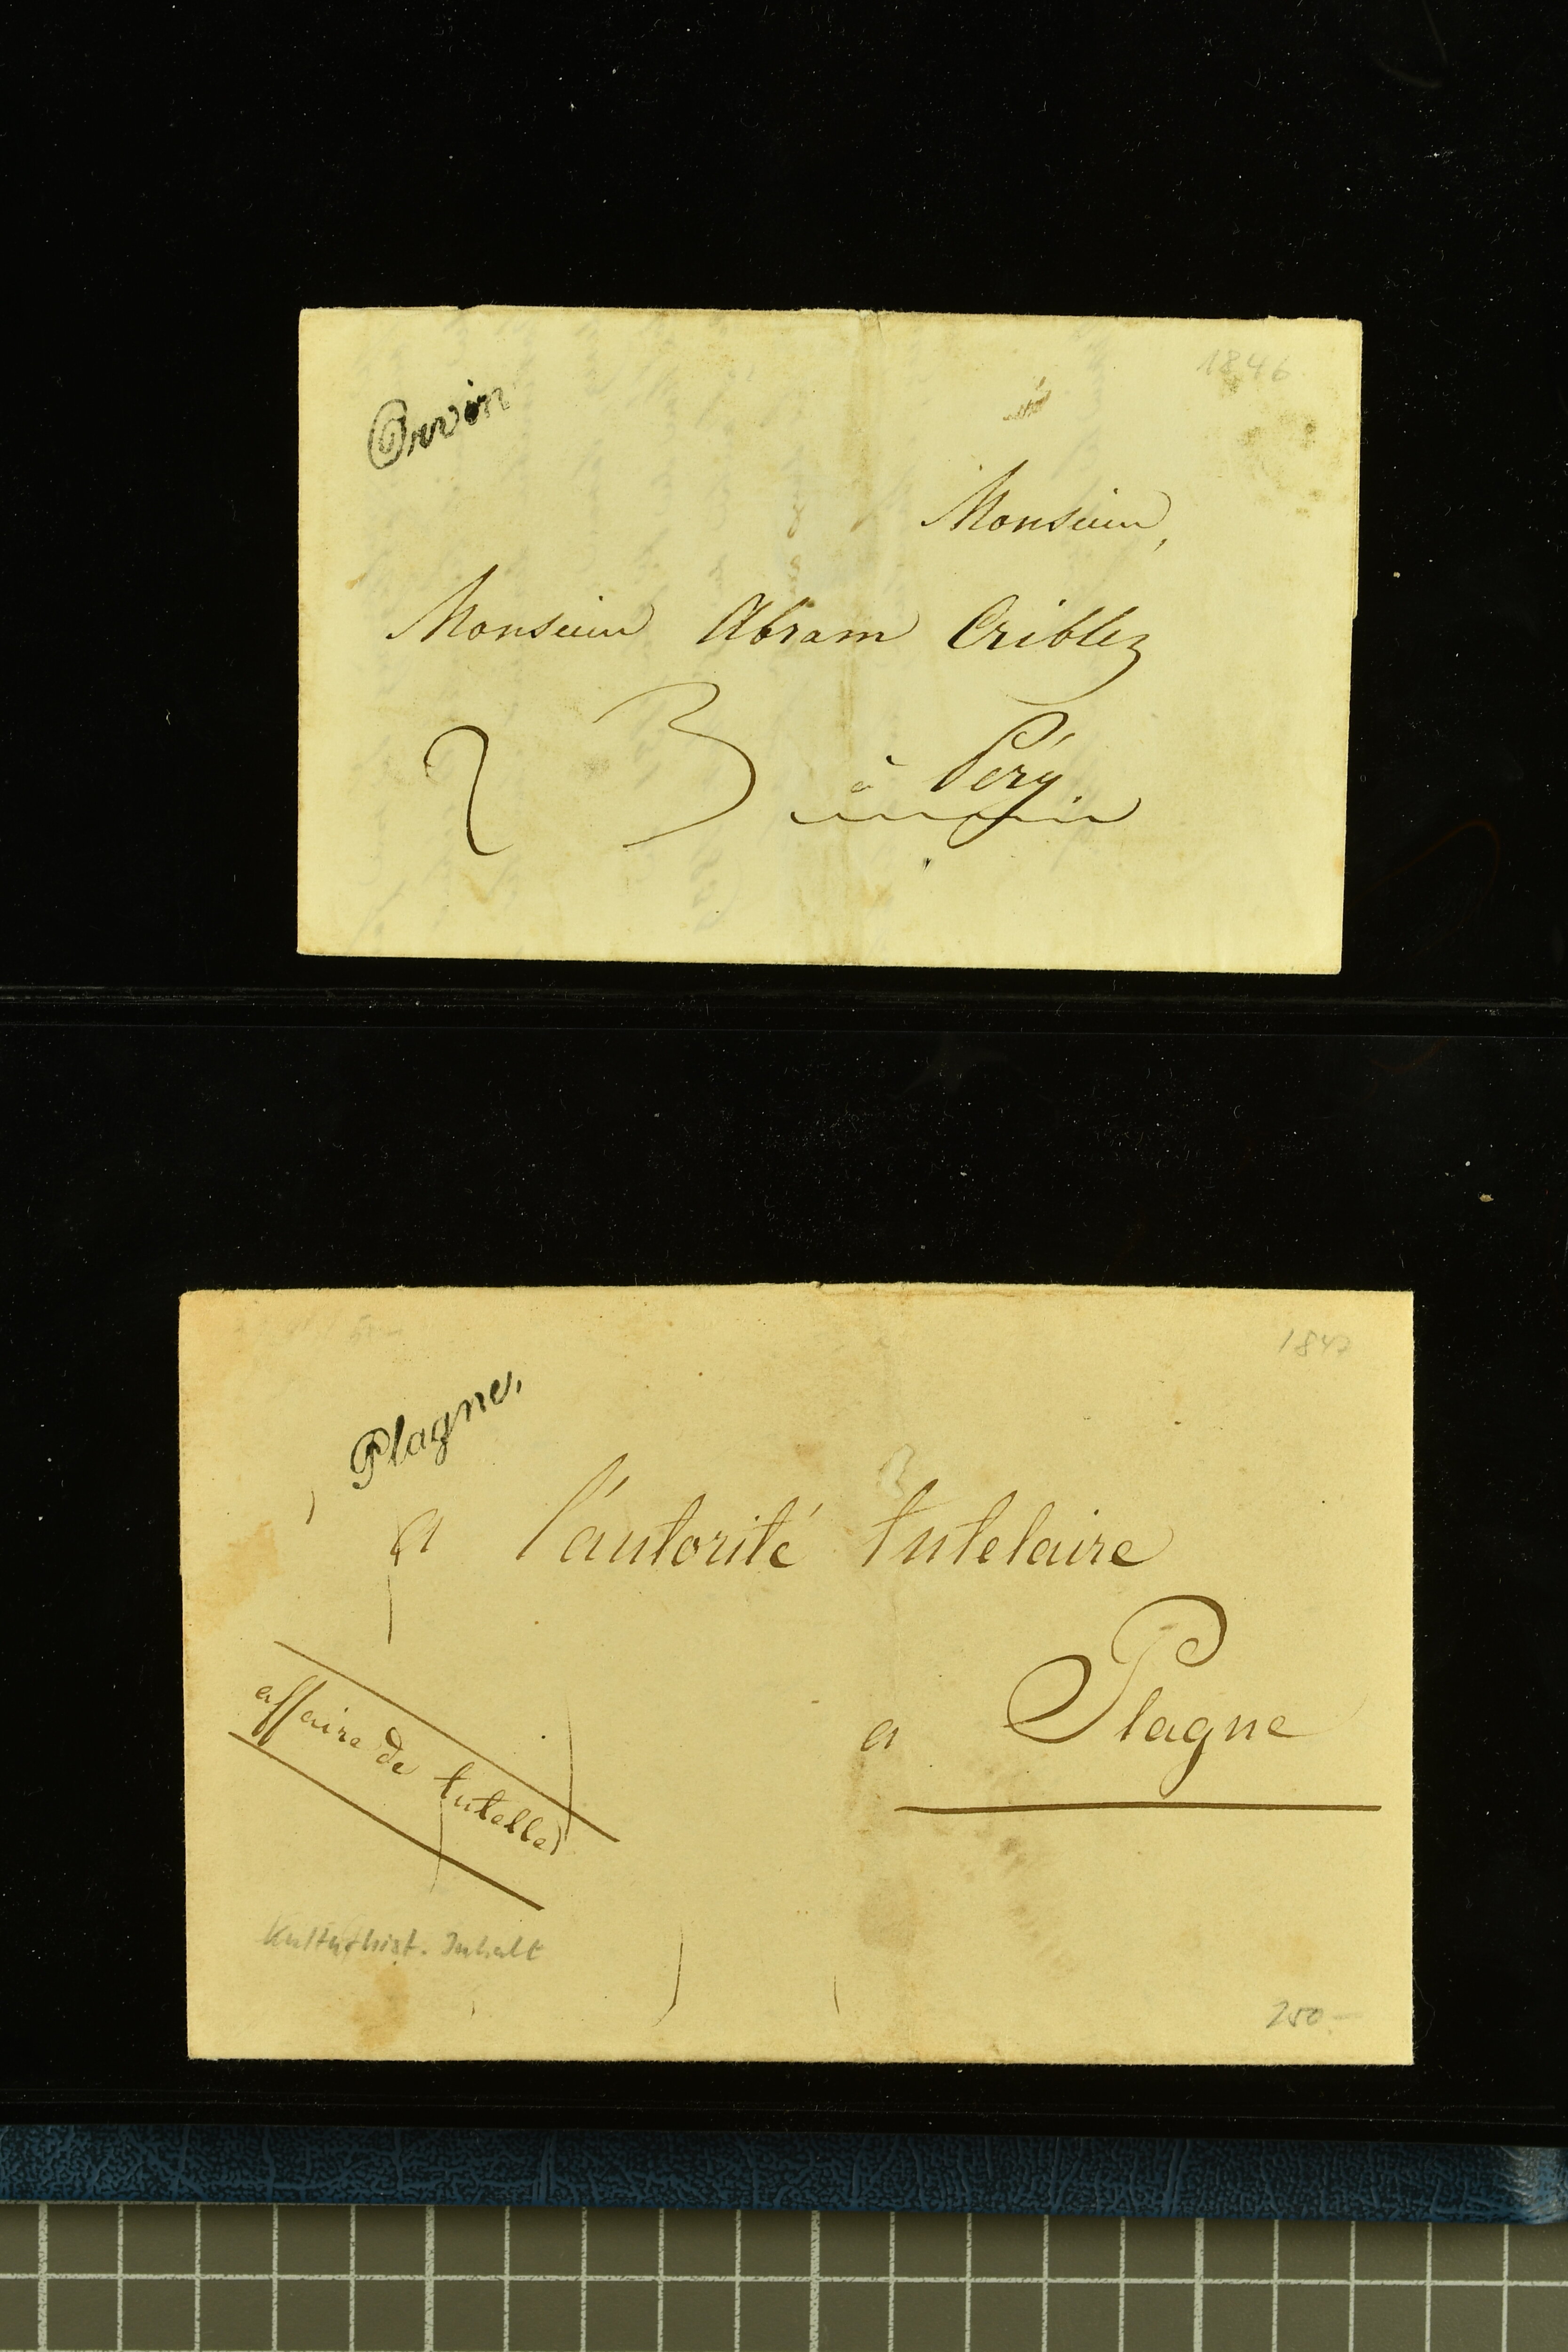 1846
Orvin
Monsieur,
Monsieur Abram Criblez
2 3 à Péry.
1847
Plagne,
a l'autorité tutelaire
a Plagne
affaire de tutelle
Kulturhist. Inhalt
250.-